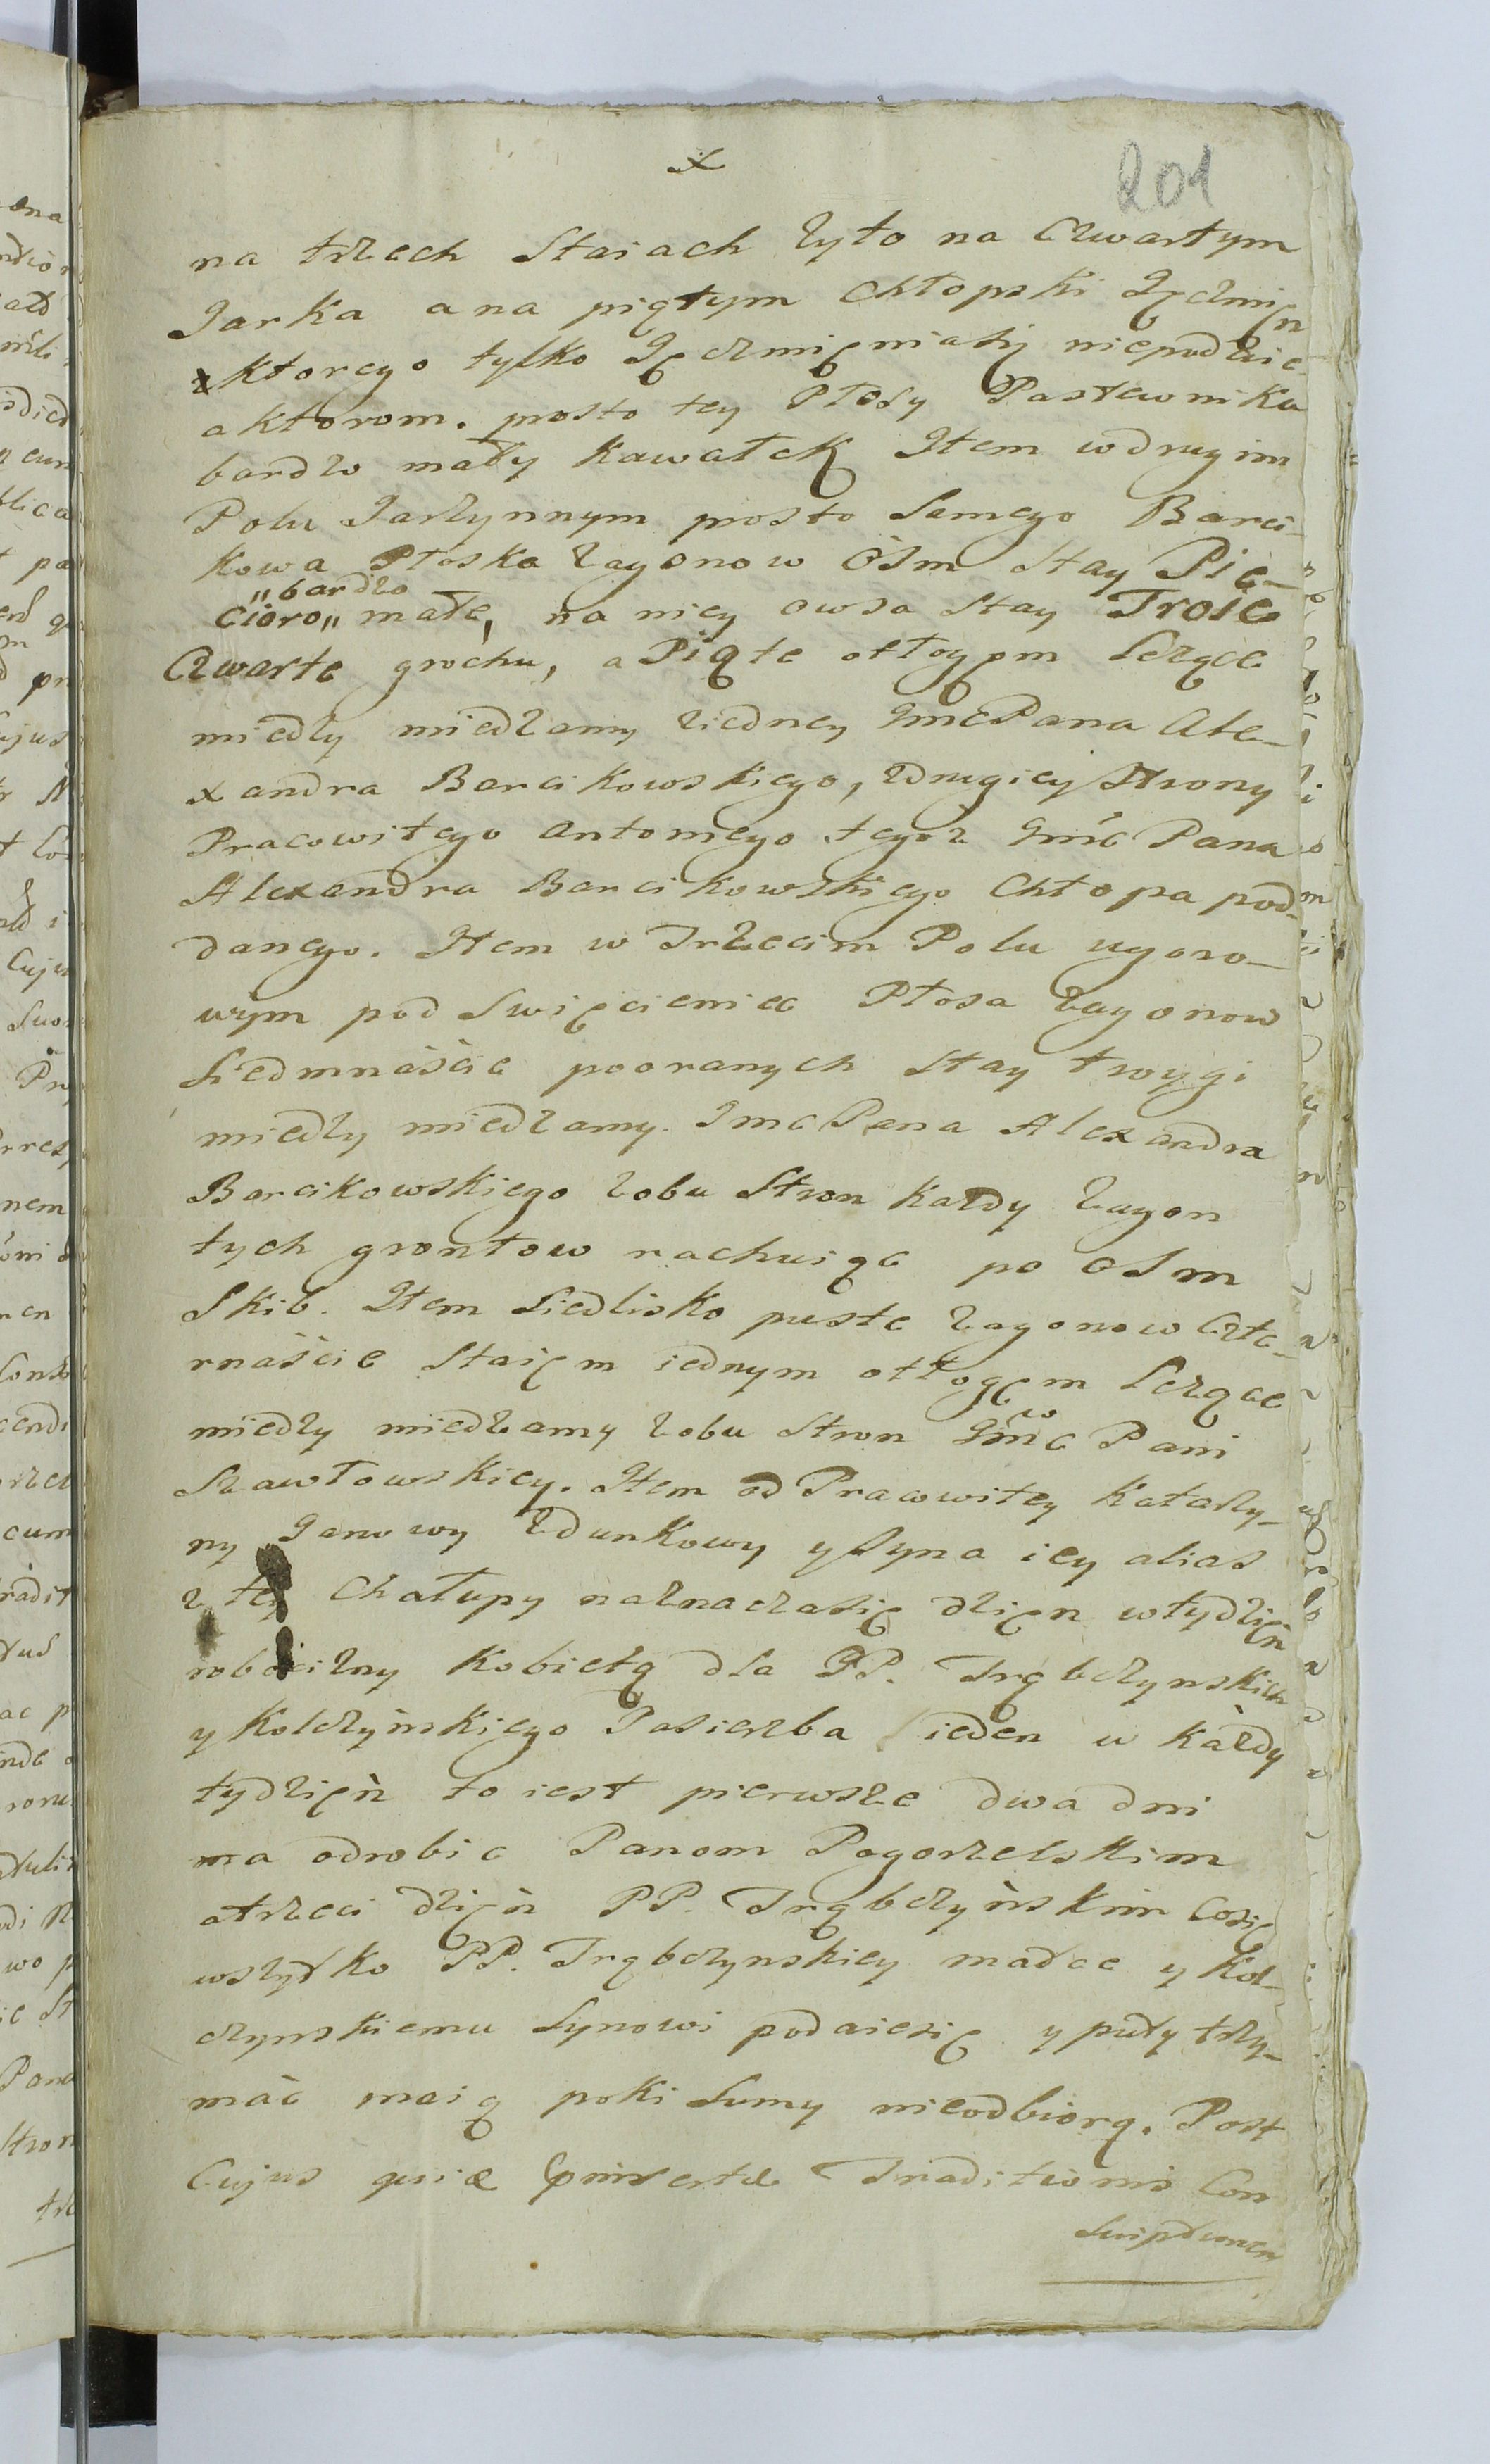 x
201
na trzech Staiach żyto na Czwartym
Jarka a na piątym chłopski Jęczmięn
z ktorego tylko Jęczmięniasię niepodzie-
aktorom. prosto tey Płosy Pastewnika
bardzo mały kawałek Item wdrugim
Polu Jarzynnym prosto Samego Barci-
kowa Płoska zagonow Ośm Stay Pię-
"bardzo
cioro" małe, na niey owsa Stay Troie
Czwarte grochu, a Piąte odłogęm Leżące
miedzy miedzamy ziedney JmcPana Ale-
xandra Barcikowskiego, zdrugiey Strony
Pracowitego Antoniego tegoż Jmć Pana
Alexandra Barcikowskiego Chłopa pod-
danego. Item w Trzecim Polu ugoro-
wym pod Swięcieniec Płosa zagonow
Siedmnaście pooranych Stay troygi
miedzy miedzamy. Jmc Pana Alexandra
Barcikowskiego zobu Stron każdy zagon
tych grontow rachuiąc po ośm
Skib. Item Siedlisko puste zagonow Czte-
rnaście Staięm iednym odłogęm Leżące
miedzy miedzamy zobu Stron Jmć Pani
Szawłowskiey. Item od Pracowitey Katarzy-
ny Janowy Zdunkowy y Syna iey alias
z tey Chałupy naznaczasię dzięn wtydzięn
robocizny kobietą dla PP. Trąbczynskich
y Kolczyńskiego Pasierzba ieden w każdy
tydzięń to iest pierwsze dwa dni
ma odrobic Panom Pogorzelskim
atrzeci dzięń PP. Trąbczyńskim Cosię
wszytko PP. Trąbczynskiey matce y Kol-
czynskiemu Synowi podaiesię y puty trzy-
mać maią poki Sumy nieodbiorą. Post
Cujus quidem Traditionis Con
Scriptionem